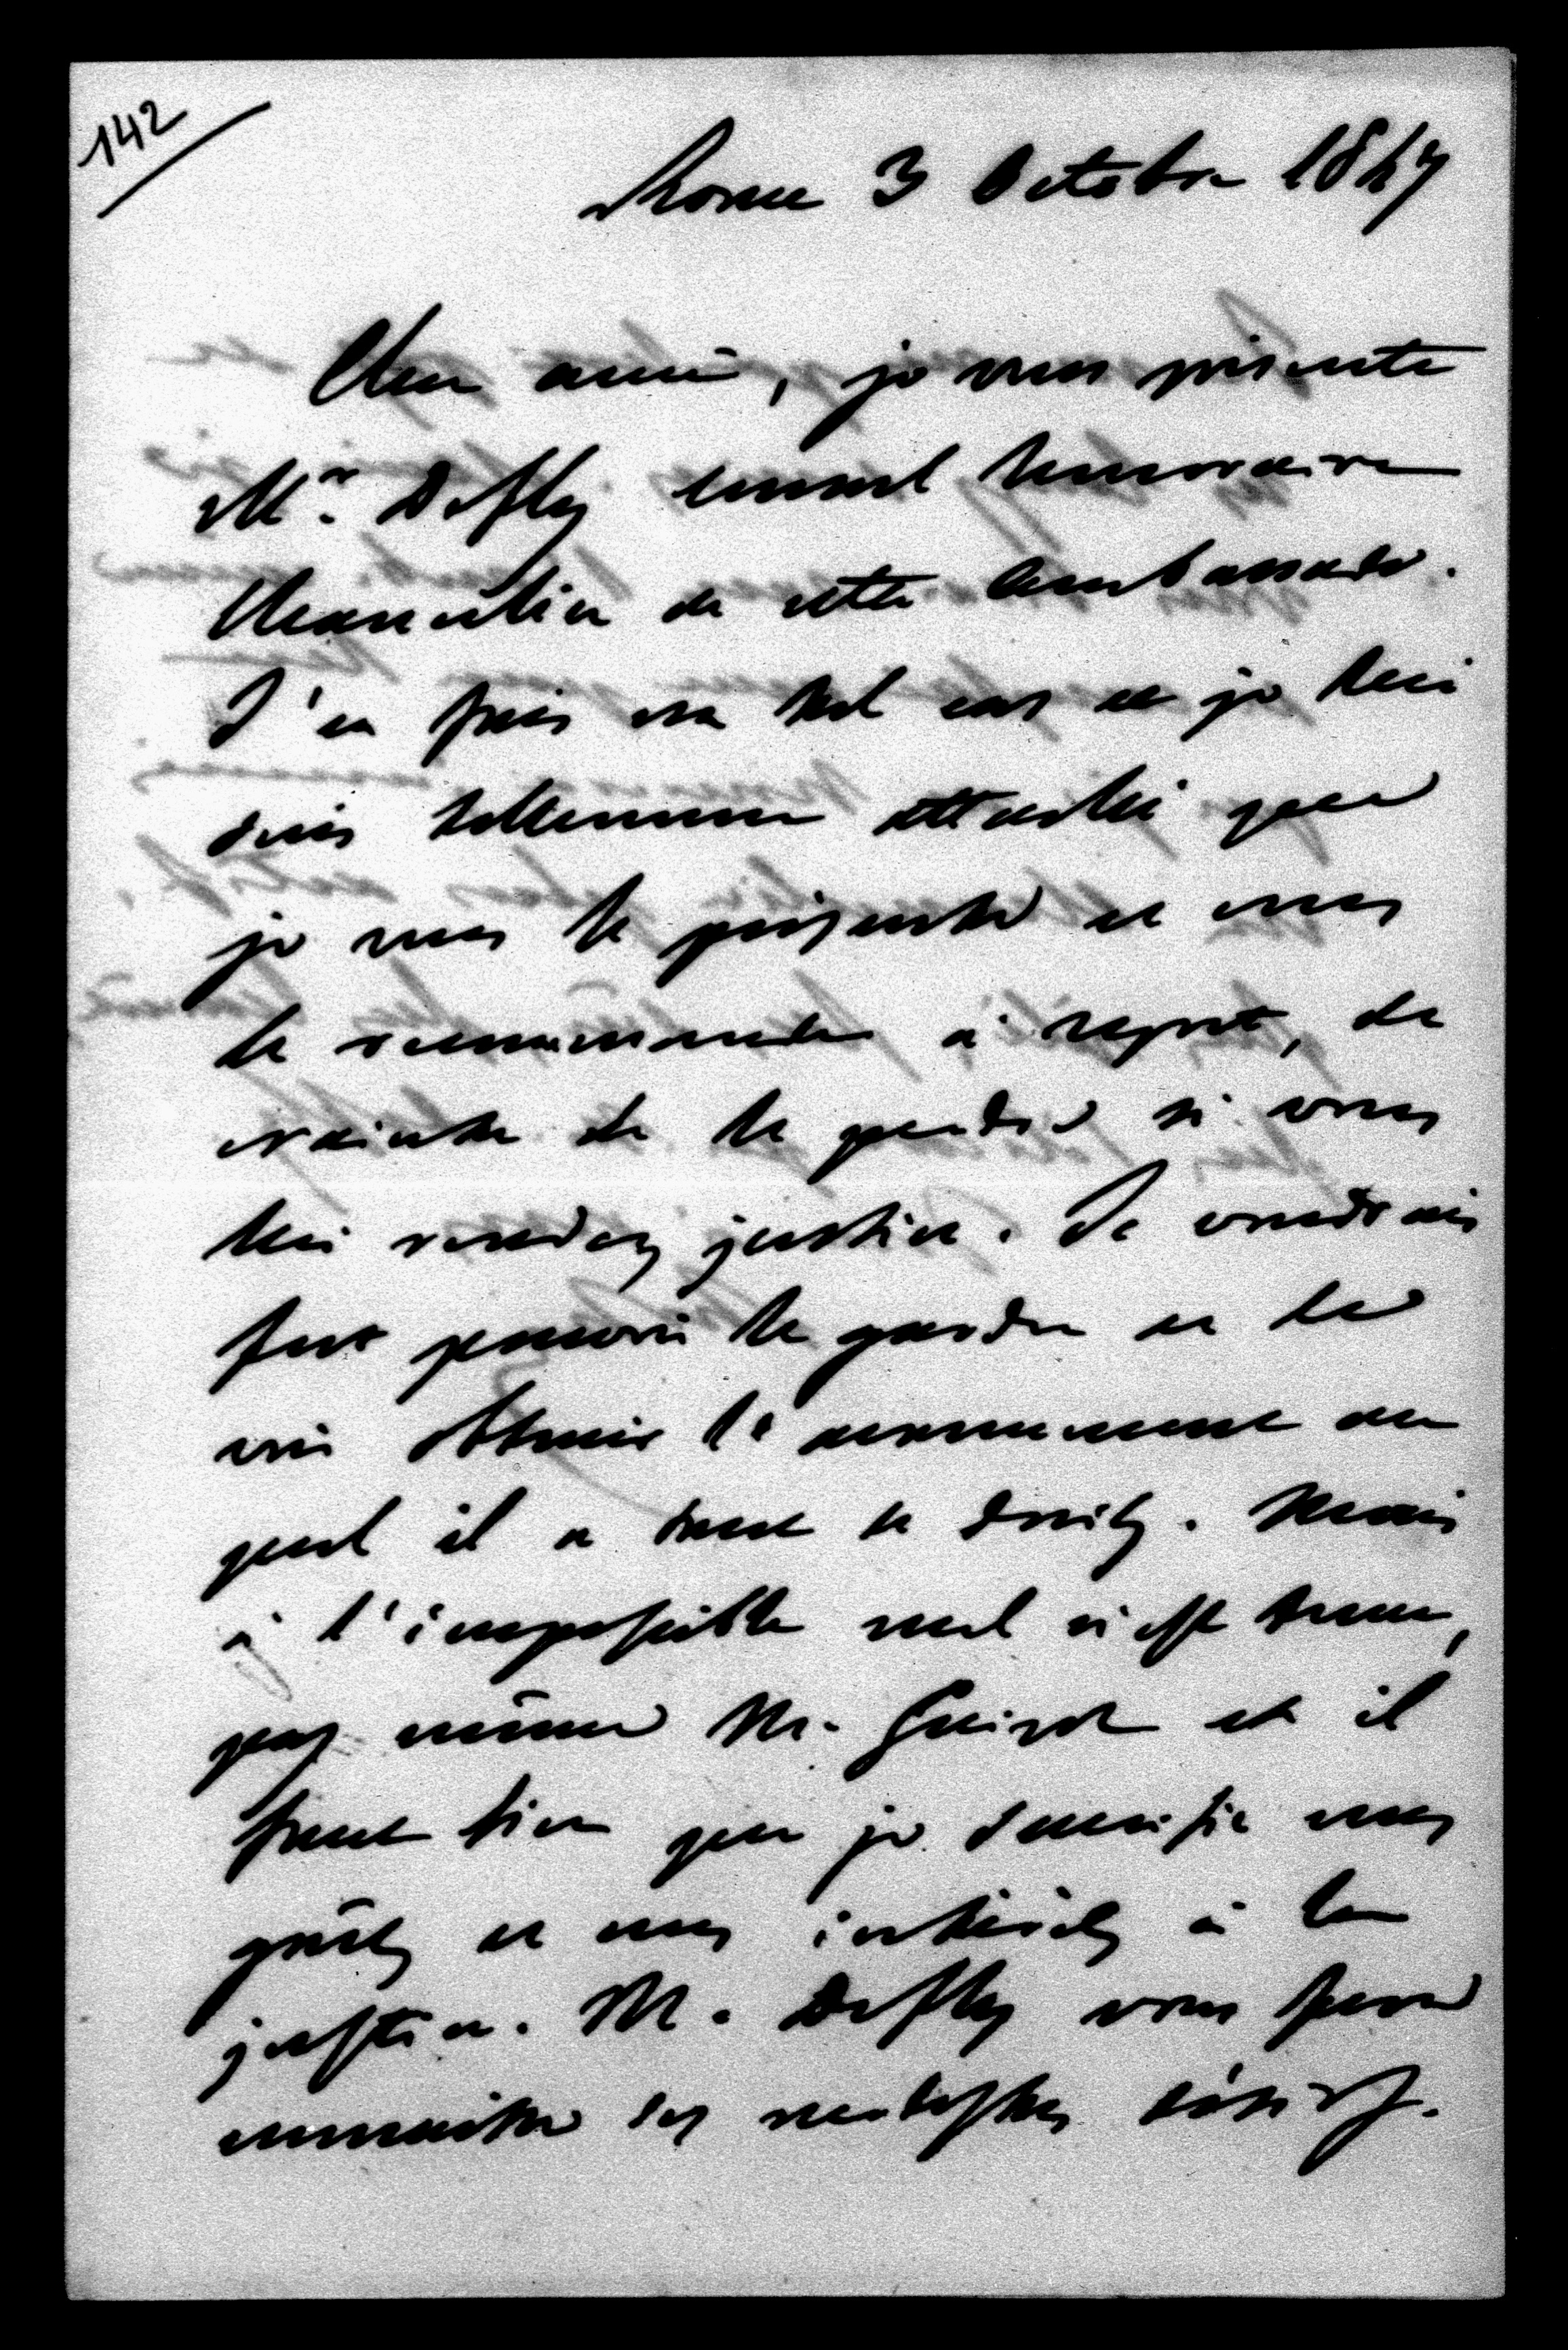 142
Rome 3 Octobre 1847
Cher ami, je vous présente
Mr. Desfly consul honoraire
Chancelier de cette Ambassade.
J'en fais un tel cas et je lui
suis tellement attaché que
je vous le présente et vous
le recommande à regret, de
crainte de le perdre si vous
lui rendez justice. Je voudrais
fort pouvoir le garder et lui
voir obtenir l'avancement au
quel il a tant de droits. Mais
à l'impossible nul n'est tenu,
pas même M. Guizot et il
faut bien que je sacrifie mes
goûts et mes intérêts à la
justice. M. Desfly vous fera
connaître ses modestes désirs.